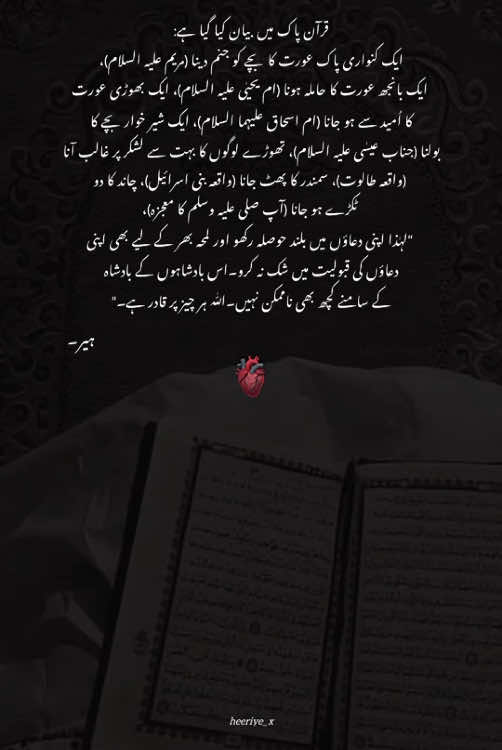 قرآن پاک میں بیان کیا گیا ہے:
ایک کنواری پاک عورت کا بچے کو جنم دینا (مریم علیہ السلام)،
ایک بانجھ عورت کا حاملہ ہونا (ام یحییٰ علیہ السلام)، ایک بھوڑی عورت
کا اُمید سے ہو جانا (ام اسحاق علیہما السلام)، ایک شیر خوار بچے کا
بولنا (جناب عیسٰی علیہ السلام)، تھوڑے لوگوں کا بہت سے لشکر پر غالب آنا
(واقعہ طالوت)، سمندر کا پھٹ جانا (واقعہ بنی اسرائیل)، چاند کا دو
ٹکڑے ہو جانا (آپ صلی علیہ وسلم کا معجزہ)،
"لہٰذا اپنی دعاؤں میں بلند حوصلہ رکھو اور لمحہ بھر کے لیے بھی اپنی
دعاؤں کی قبولیت میں شک نہ کرو۔اس بادشاہوں کے بادشاہ
کے سامنے کچھ بھی ناممکن نہیں۔اللہ ہر چیز پر قادر ہے۔"
ہیر۔
heeriye_x